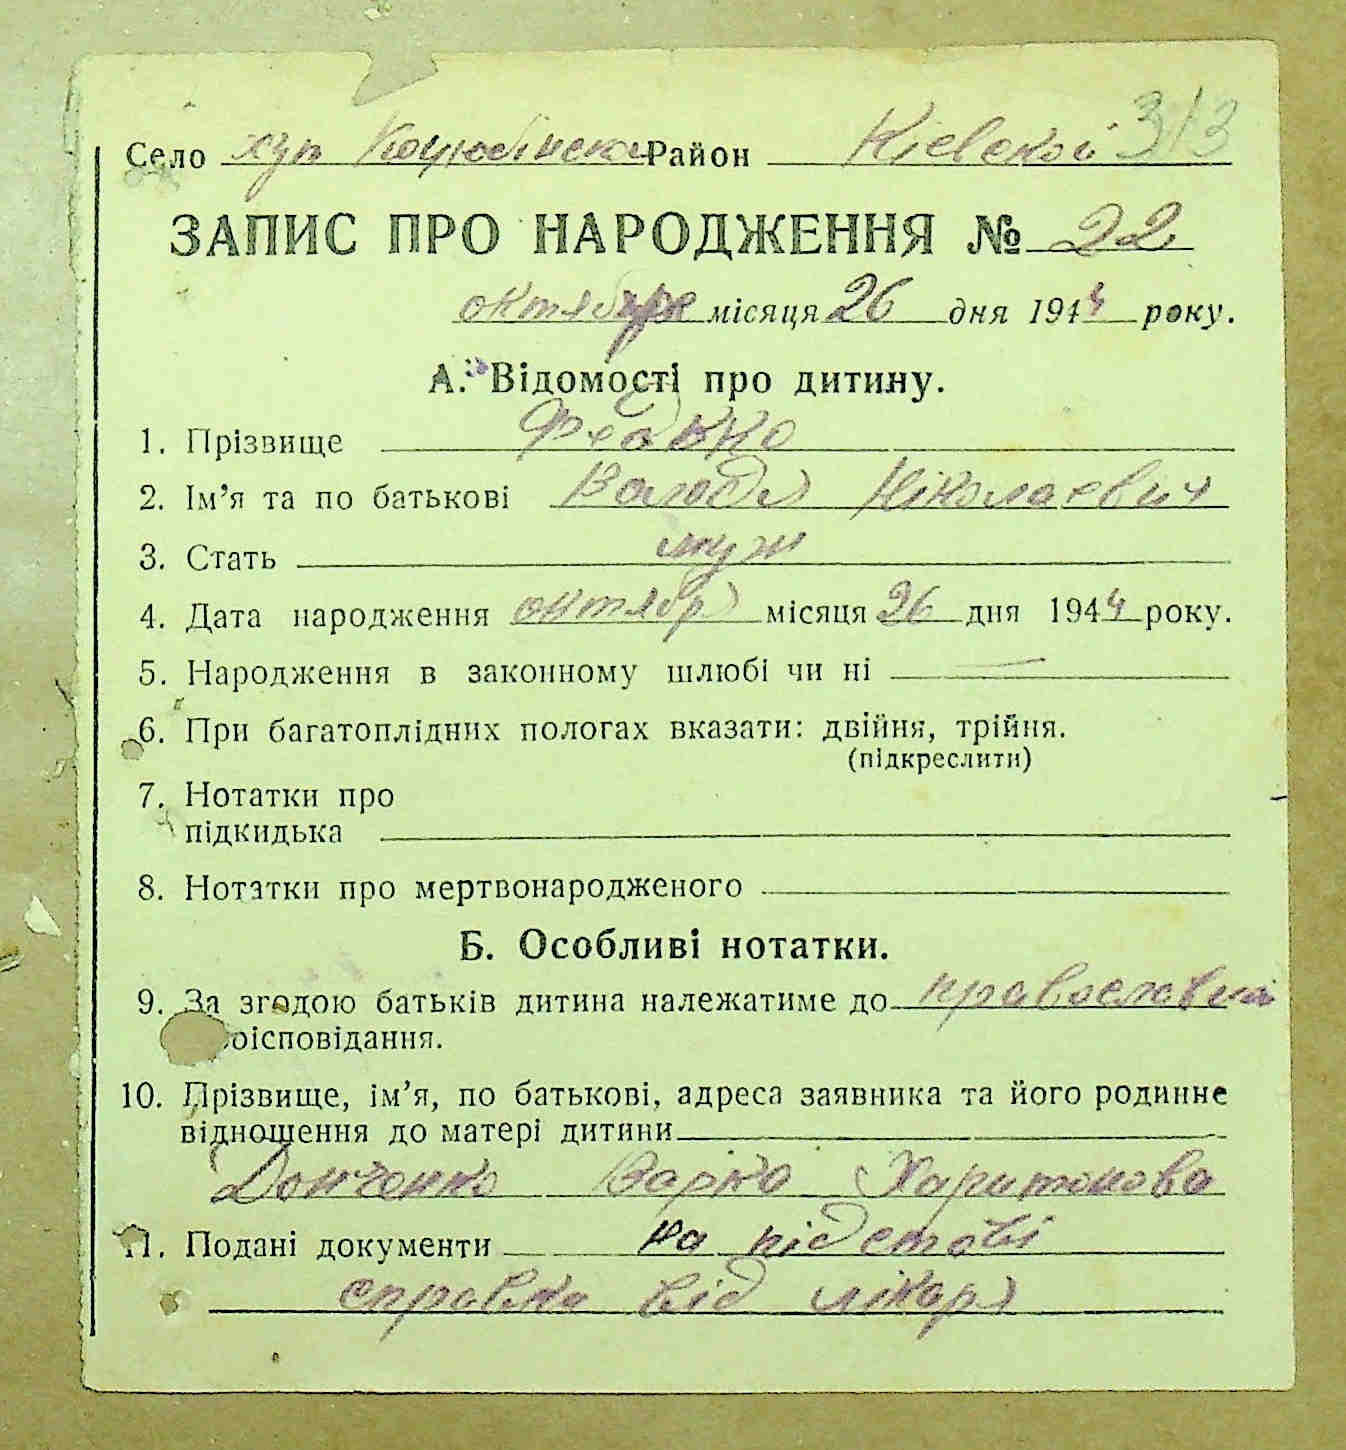 Село хут Коцюбінска Район Кіевской 313
ЗАПИС ПРО НАРОДЖЕННЯ № 22
октября місяця 26 дня 1944 року.
А. Відомості про дитину.
1. Прізвище Федько
2. Ім’я та по батькові Валодя Ніколаевич
3. Стать муж
4. Дата народження октябр місяця 26 дня 1944 року.
5. Народження в законному шлюбі чи ні —
6. При багатоплідних пологах вказати: двійня, трійня.
(підкреслити)
7. Нотатки про
підкидька
8. Нотатки про мертвонародженого
Б. Особливі нотатки.
9. За згодою батьків дитина належатиме до православна
оісповідання.
10. Прізвище, ім’я, по батькові, адреса заявника та його родинне
відношення до матері дитини
Донченко Варка Харитонова
11. Подані документи на підставі
справка від лікаря